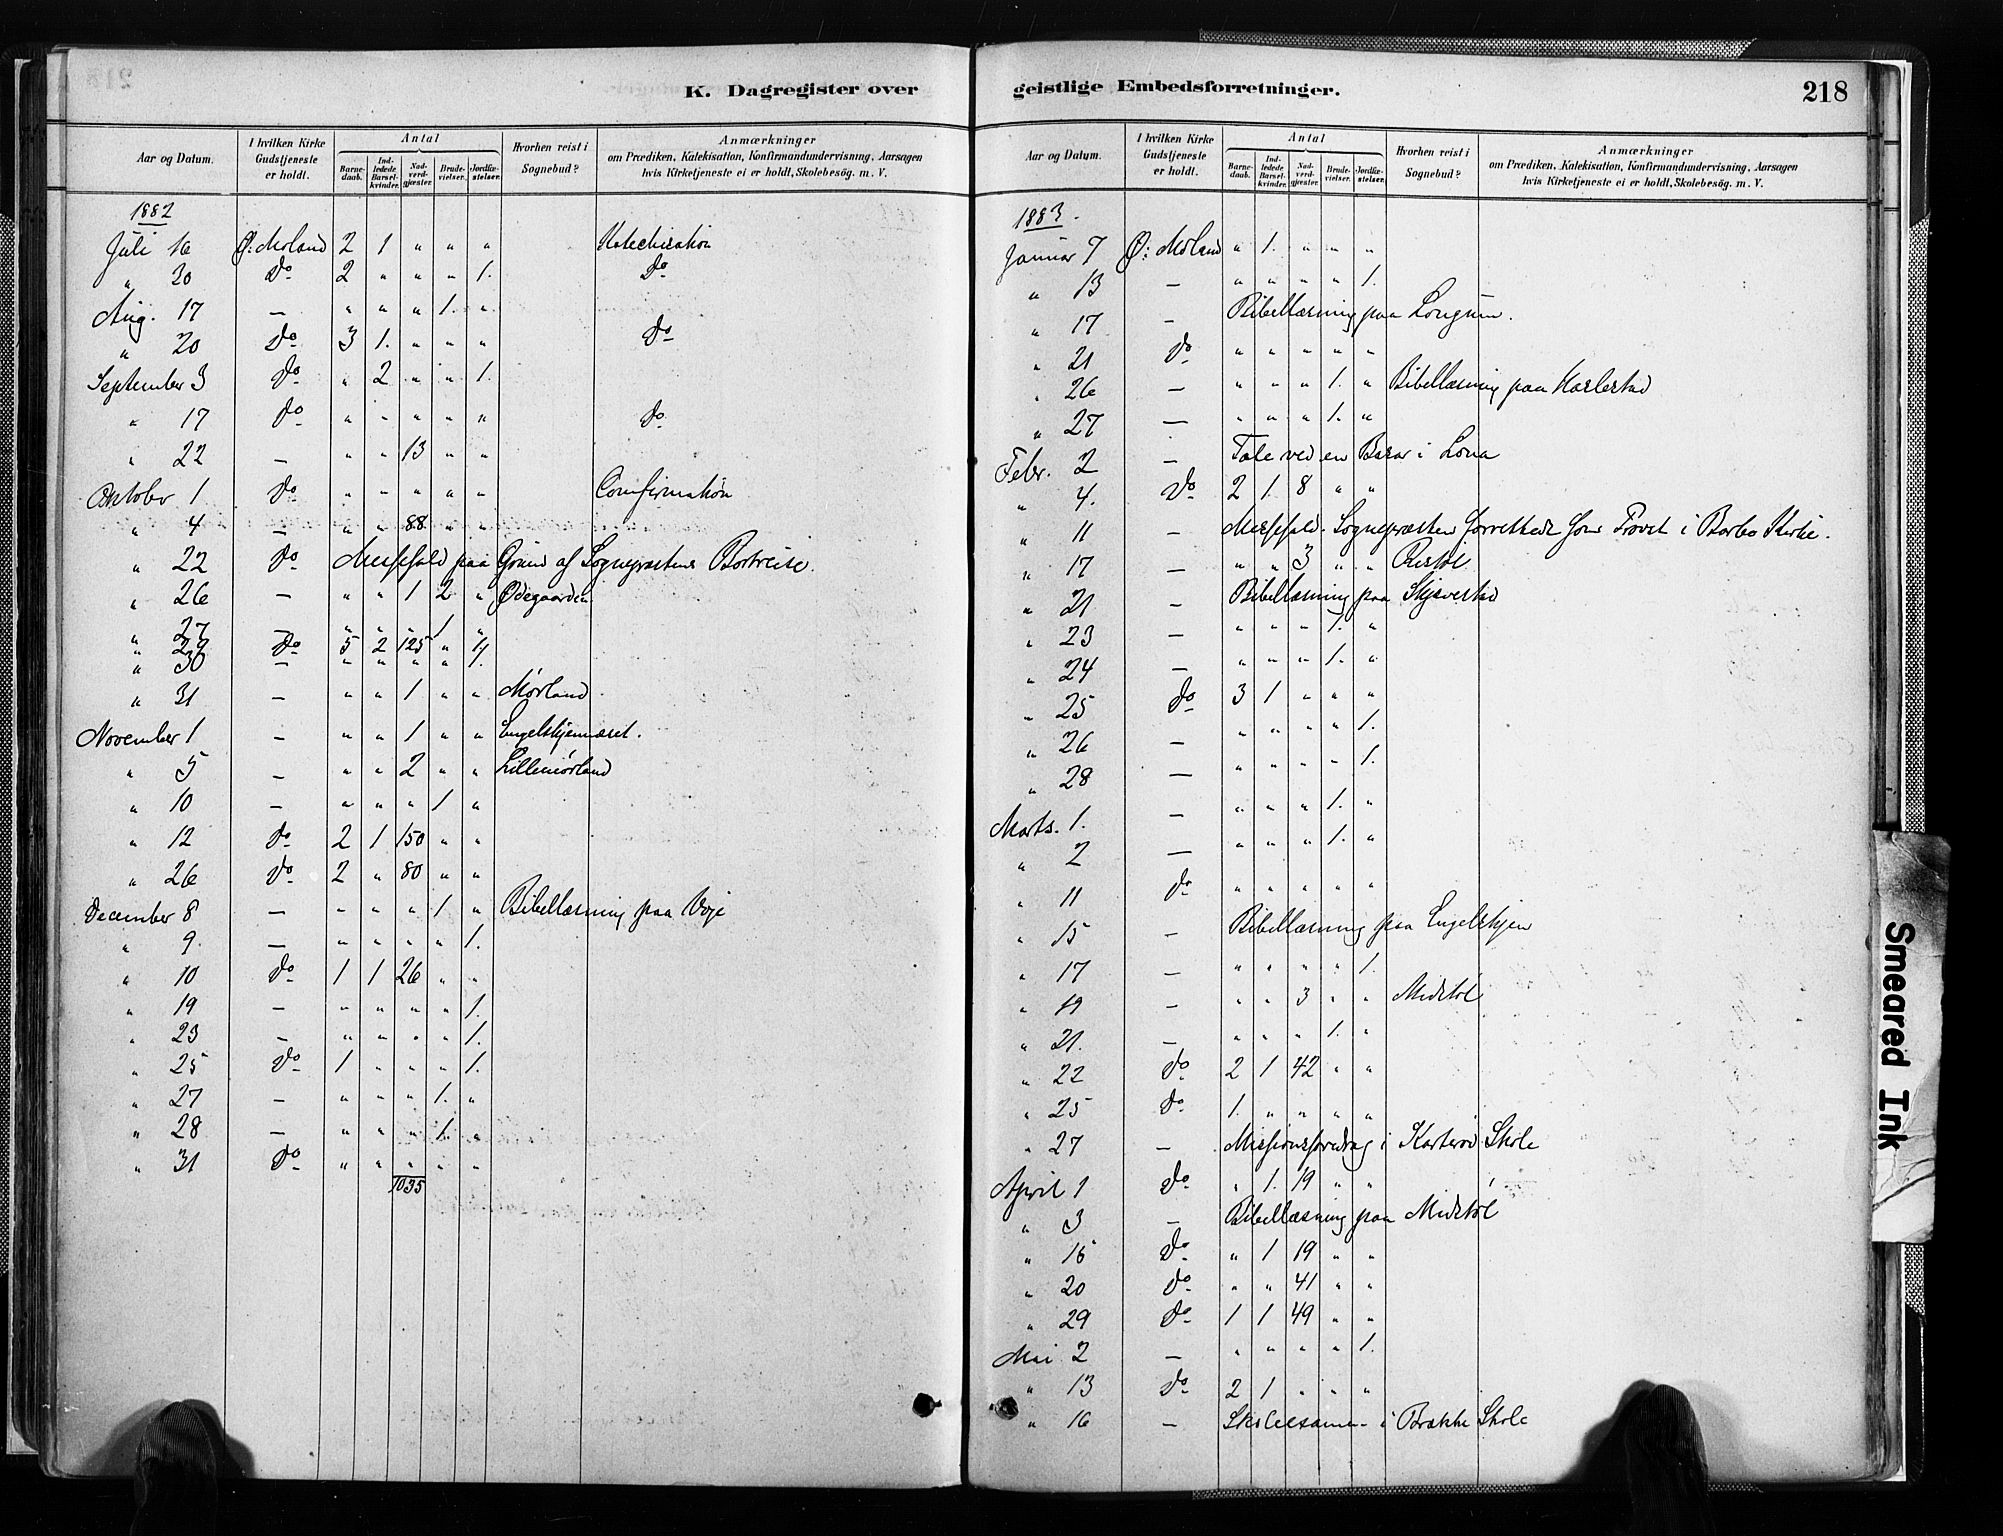 K. Dagregister over
Aar og Datum.
I hvilken Kirke Gudstjeneste er holdt.
Antal
Barnedaab.
Indledede Barselkvinder.
Nadverdgjæster.
Brudevielser.
Jordfæstelser.
Hvorhen reist i Sognebud?
Anmærkninger
om Prædiken, Katekisation, Konfirmandundervisning, Aarsagen
hvis Kirketjeneste ei er holdt, Skolebesög. m. V.
1882
Juli 16 Ø: Moland 2 1 " " " Katechisation
" 30 do 2 " " " 1. do
Aug. 17 — " " " 1. "
" 20 do 3 1. " " " do
September 3 do " 2 " " 1.
" 17 do " " " " " do
" 22 — " " 13 " "
Oktober 1 do " " " " " Confirmation
" 4 — " " 88 " "
" 22 do Messefald paa Grund af Sognepræstens Bortreise.
" 26 — " " 1 2 " Ødegaarden
" 27 — " " " 1 "
" 29 do 5 2 125 " 4
" 30 — " " " " 1.
" 31 — " " 1 " " Mørland.
November 1 — " " 1 " " Engelskjennæret.
" 5 — " " 2 " " Lillemørland
" 10 — " " " 1 "
" 12 do 2 1 150 " "
" 26 do 2 " 80 " "
December 8 — " " " 1 " Bibellæsning paa Voje
" 9 — " " " " 1.
" 10 do 1 1 26 " "
" 19 — " " " " 1.
" 23 — " " " " 1.
" 25 do 1 " " " 1.
" 27 — " " " 1. "
" 28 — " " " 1. "
" 31 do " " " " "
1035
geistlige Embedsforretninger.
218
Aar og Datum.
I hvilken Kirke Gudstjeneste er holdt.
Antal
Barnedaab.
Indledede Barselkvinder.
Nadverdgjæster.
Brudevielser.
Jordfæstelser.
Hvorhen reist i Sognebud?
Anmærkninger
om Prædiken, Katekisation, Konfirmandundervisning, Aarsagen
hvis Kirketjeneste ei er holdt, Skolebesög. m. V.
1883.
Januar 7 Ø: Moland " 1. " " "
" 13 — " " " " 1.
" 17 — Bibellæsning paa Longum.
" 21 do " " " " "
" 26 — " " " 1. " Bibellæsning paa Harlestad
" 27 — " " " 1. "
Febr. 2 — Tale ved en Bazar i Lona
" 4. do 2 1. 8 " "
" 11 — Messefald. Sognepræsten forrettede som Provst i Barbo Kirke.
" 17 — " " 3 " "
" 21 — Bibellæsning paa Skjævestad
" 23 — " " " 1. "
" 24 — " " " 1. "
" 25 do 3 1 " " "
" 26 — " " " " 1.
" 28 — " " " " 1.
Marts. 1. — " " " 1. "
" 2 — " " " 1. "
" 11 do " " " " "
" 15 — Bibellæsning paa Engelskjen
" 17 — " " " " 1.
" 19 — " " 3 " " Midstøl
" 21. — " " " 1. "
" 22 do 2 1 42 " "
" 25 do 1. " " " "
" 27 — Missionsforedrag i Skole
April 1 do " 1. 19 " "
" 3 — Bibellæsning paa Midstøl
" 15 do " 1 19 " "
" 20 do " " 41 " "
" 29 do 1 1 49 " "
Mai 2 — " " " " 1.
" 13 do 2 1 " " "
" 16 — i Brække Skole
Smeared Ink